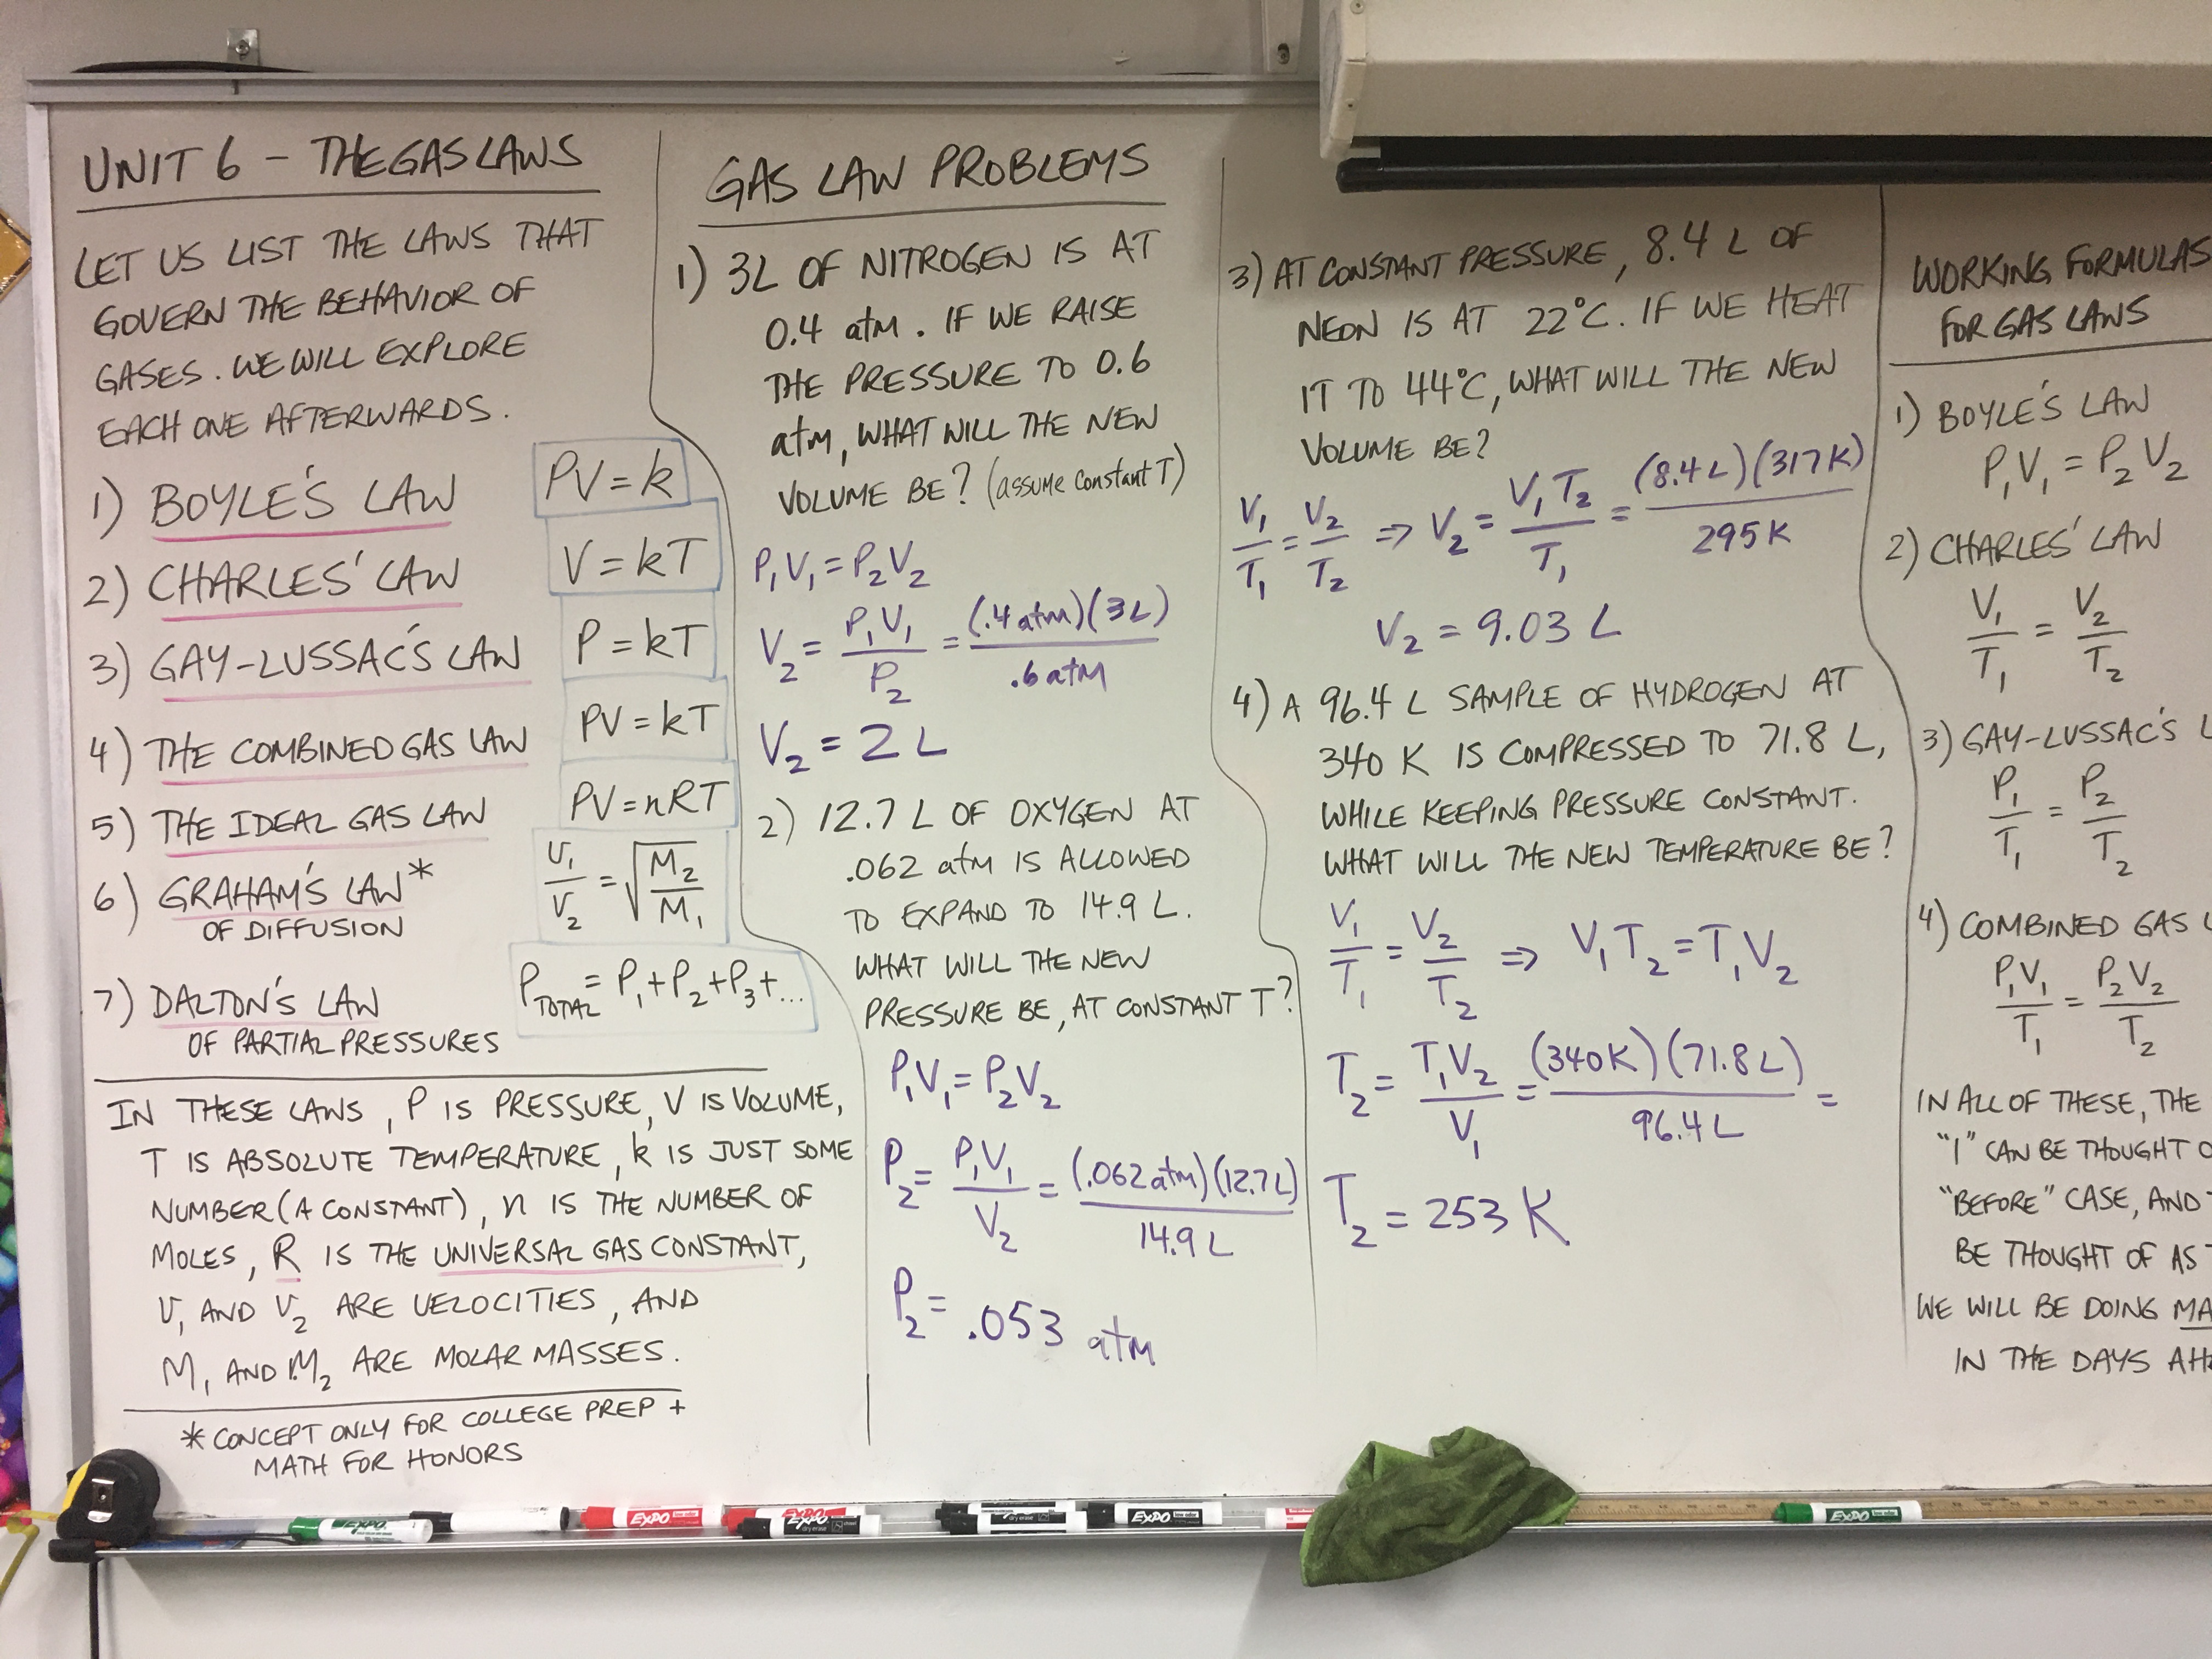 UNIT 6 - THE GAS LAWS
LET US LIST THE LAWS THAT
GOVERN THE BEHAVIOR OF
GASES. WE WILL EXPLORE
EACH ONE AFTERWARDS.
1) BOYLE'S LAW PV = k
2) CHARLES' LAW V = kT
3) GAY-LUSSAC'S LAW P = kT
4) THE COMBINED GAS LAW PV = kT
5) THE IDEAL GAS LAW PV = nRT
6) GRAHAM'S LAW* v₁/v₂ = √(M₂/M₁)
OF DIFFUSION
7) DALTON'S LAW P TOTAL = P₁+P₂+P₃+...
OF PARTIAL PRESSURES
IN THESE LAWS, P IS PRESSURE, V IS VOLUME,
T IS ABSOLUTE TEMPERATURE, k IS JUST SOME
NUMBER (A CONSTANT), n IS THE NUMBER OF
MOLES, R IS THE UNIVERSAL GAS CONSTANT,
v₁ AND v₂ ARE VELOCITIES, AND
M₁ AND M₂ ARE MOLAR MASSES.
* CONCEPT ONLY FOR COLLEGE PREP +
MATH FOR HONORS
GAS LAW PROBLEMS
1) 3L OF NITROGEN IS AT
0.4 atm. IF WE RAISE
THE PRESSURE TO 0.6
atm, WHAT WILL THE NEW
VOLUME BE? (assume constant T)
P₁V₁ = P₂V₂
V₂ = P₁V₁/P₂ = (.4 atm)(3L)/.6 atm
V₂ = 2 L
2) 12.7 L OF OXYGEN AT
.062 atm IS ALLOWED
TO EXPAND TO 14.9 L.
WHAT WILL THE NEW
PRESSURE BE, AT CONSTANT T?
P₁V₁ = P₂V₂
P₂ = P₁V₁/V₂ = (.062 atm)(12.7L)/14.9 L
P₂ = .053 atm
3) AT CONSTANT PRESSURE, 8.4 L OF
NEON IS AT 22°C. IF WE HEAT
IT TO 44°C, WHAT WILL THE NEW
VOLUME BE?
V₁/T₁ = V₂/T₂ ⇒ V₂ = V₁T₂/T₁ = (8.4L)(317K)/295K
V₂ = 9.03 L
4) A 96.4 L SAMPLE OF HYDROGEN AT
340 K IS COMPRESSED TO 71.8 L,
WHILE KEEPING PRESSURE CONSTANT.
WHAT WILL THE NEW TEMPERATURE BE?
V₁/T₁ = V₂/T₂ ⇒ V₁T₂ = T₁V₂
T₂ = T₁V₂/V₁ = (340K)(71.8L)/96.4L =
T₂ = 253 K
WORKING FORMULAS
FOR GAS LAWS
1) BOYLE'S LAW
P₁V₁ = P₂V₂
2) CHARLES' LAW
V₁/T₁ = V₂/T₂
3) GAY-LUSSAC'S L
P₁/T₁ = P₂/T₂
4) COMBINED GAS L
P₁V₁/T₁ = P₂V₂/T₂
IN ALL OF THESE, THE
"1" CAN BE THOUGHT O
"BEFORE" CASE, AND
BE THOUGHT OF AS
WE WILL BE DOING MA
IN THE DAYS AH
EXPO
EXPO
EXPO
EXPO
EXPO
EXPO